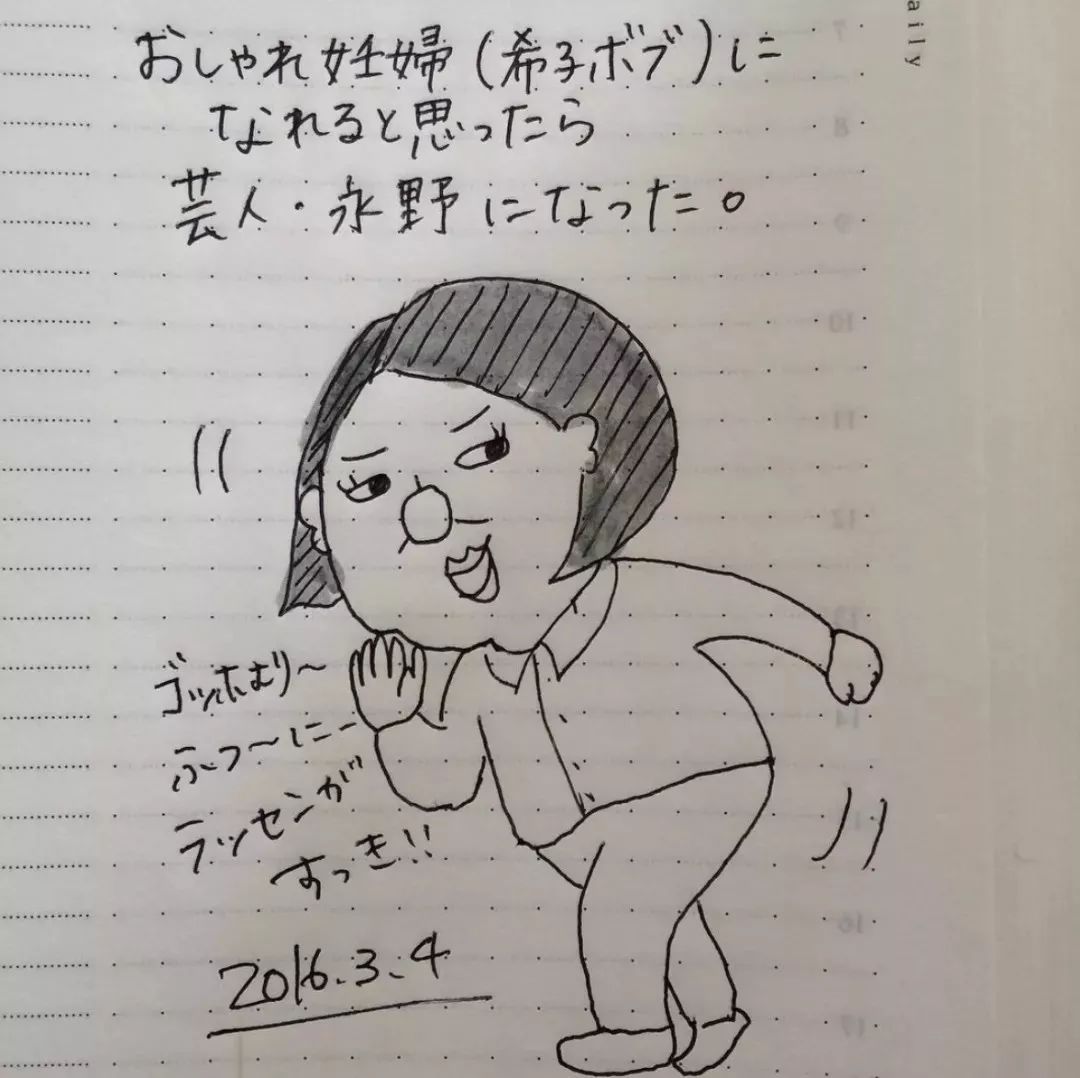 おしゃれ妊婦(希子ボブ)に
なれると思ったら
芸人・永野になった。
ゴッホより～
ふつ～にー
ラッセンが
すっき!!
2016.3.4
aily
7
8
9
10
11
12
13
14
16
17